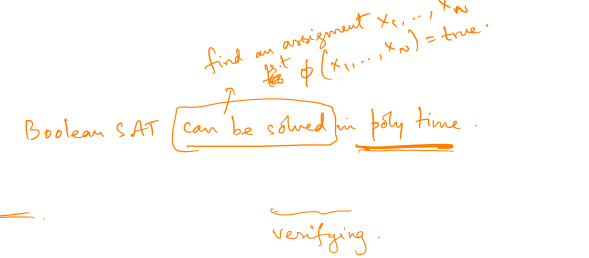 find an assignment x₁, .., x_N
s.t ϕ(x₁, .., x_N) = true.
Boolean SAT can be solved in poly time.
verifying.